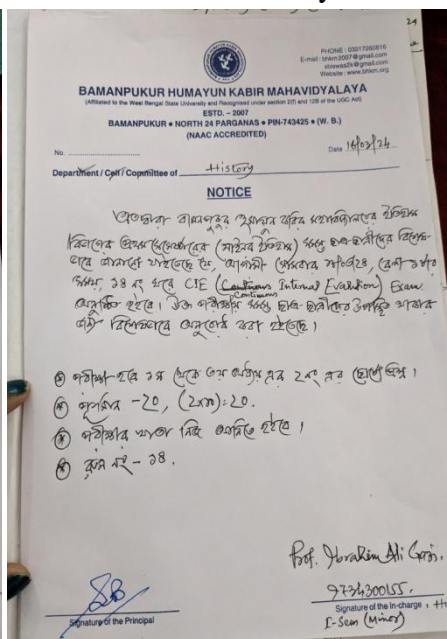 24
PHONE : 03217260816
E-mail : bhkm2007@gmail.com
Website : www.bhkm.org
BAMANPUKUR HUMAYUN KABIR MAHAVIDYALAYA
(Affiliated to the West Bengal State University and Recognised under section 2(f) and 12B of the UGC Act)
ESTD. – 2007
BAMANPUKUR • NORTH 24 PARGANAS • PIN-743425 • (W. B.)
(NAAC ACCREDITED)
No.
Date
Department / Cell / Committee of History
NOTICE
এতদ্বারা বামনপুকুর হুমায়ুন কবির মহাবিদ্যালয়ের ইতিহাস
বিভাগের প্রথম সেমেস্টারের (মাইনর ইতিহাস) সমস্ত ছাত্র-ছাত্রীদের বিশেষ-
ভাবে জানানো যাইতেছে যে, আগামী সোমবার
সময়, ১৪ নং ঘরে CIE (Continuous Internal Evaluation) Exam
Continuous
অনুষ্ঠিত হইবে। উক্ত পরীক্ষায় সমস্ত ছাত্র-ছাত্রীদের উপস্থিত থাকার
জন্য বিশেষভাবে অনুরোধ করা হইতেছে।
পরীক্ষা হবে ১ম থেকে ৩য় অধ্যায় এর ২নং এর ছোটো প্রশ্ন।
পূর্ণমান -20, (2x10)=20.
পরীক্ষার খাতা নিজে আনিতে হইবে।
রুম নং - ১৪.
Prof. Ibrahim Ali Gazi.
9734300155.
Signature of the Principal
Signature of the In-charge
I-Sem (Minor)